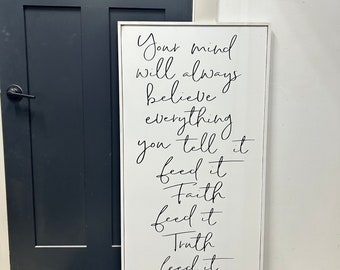 Your mind
will always
believe
everything
you tell it
feed it
Faith
feed it
Truth
feed it